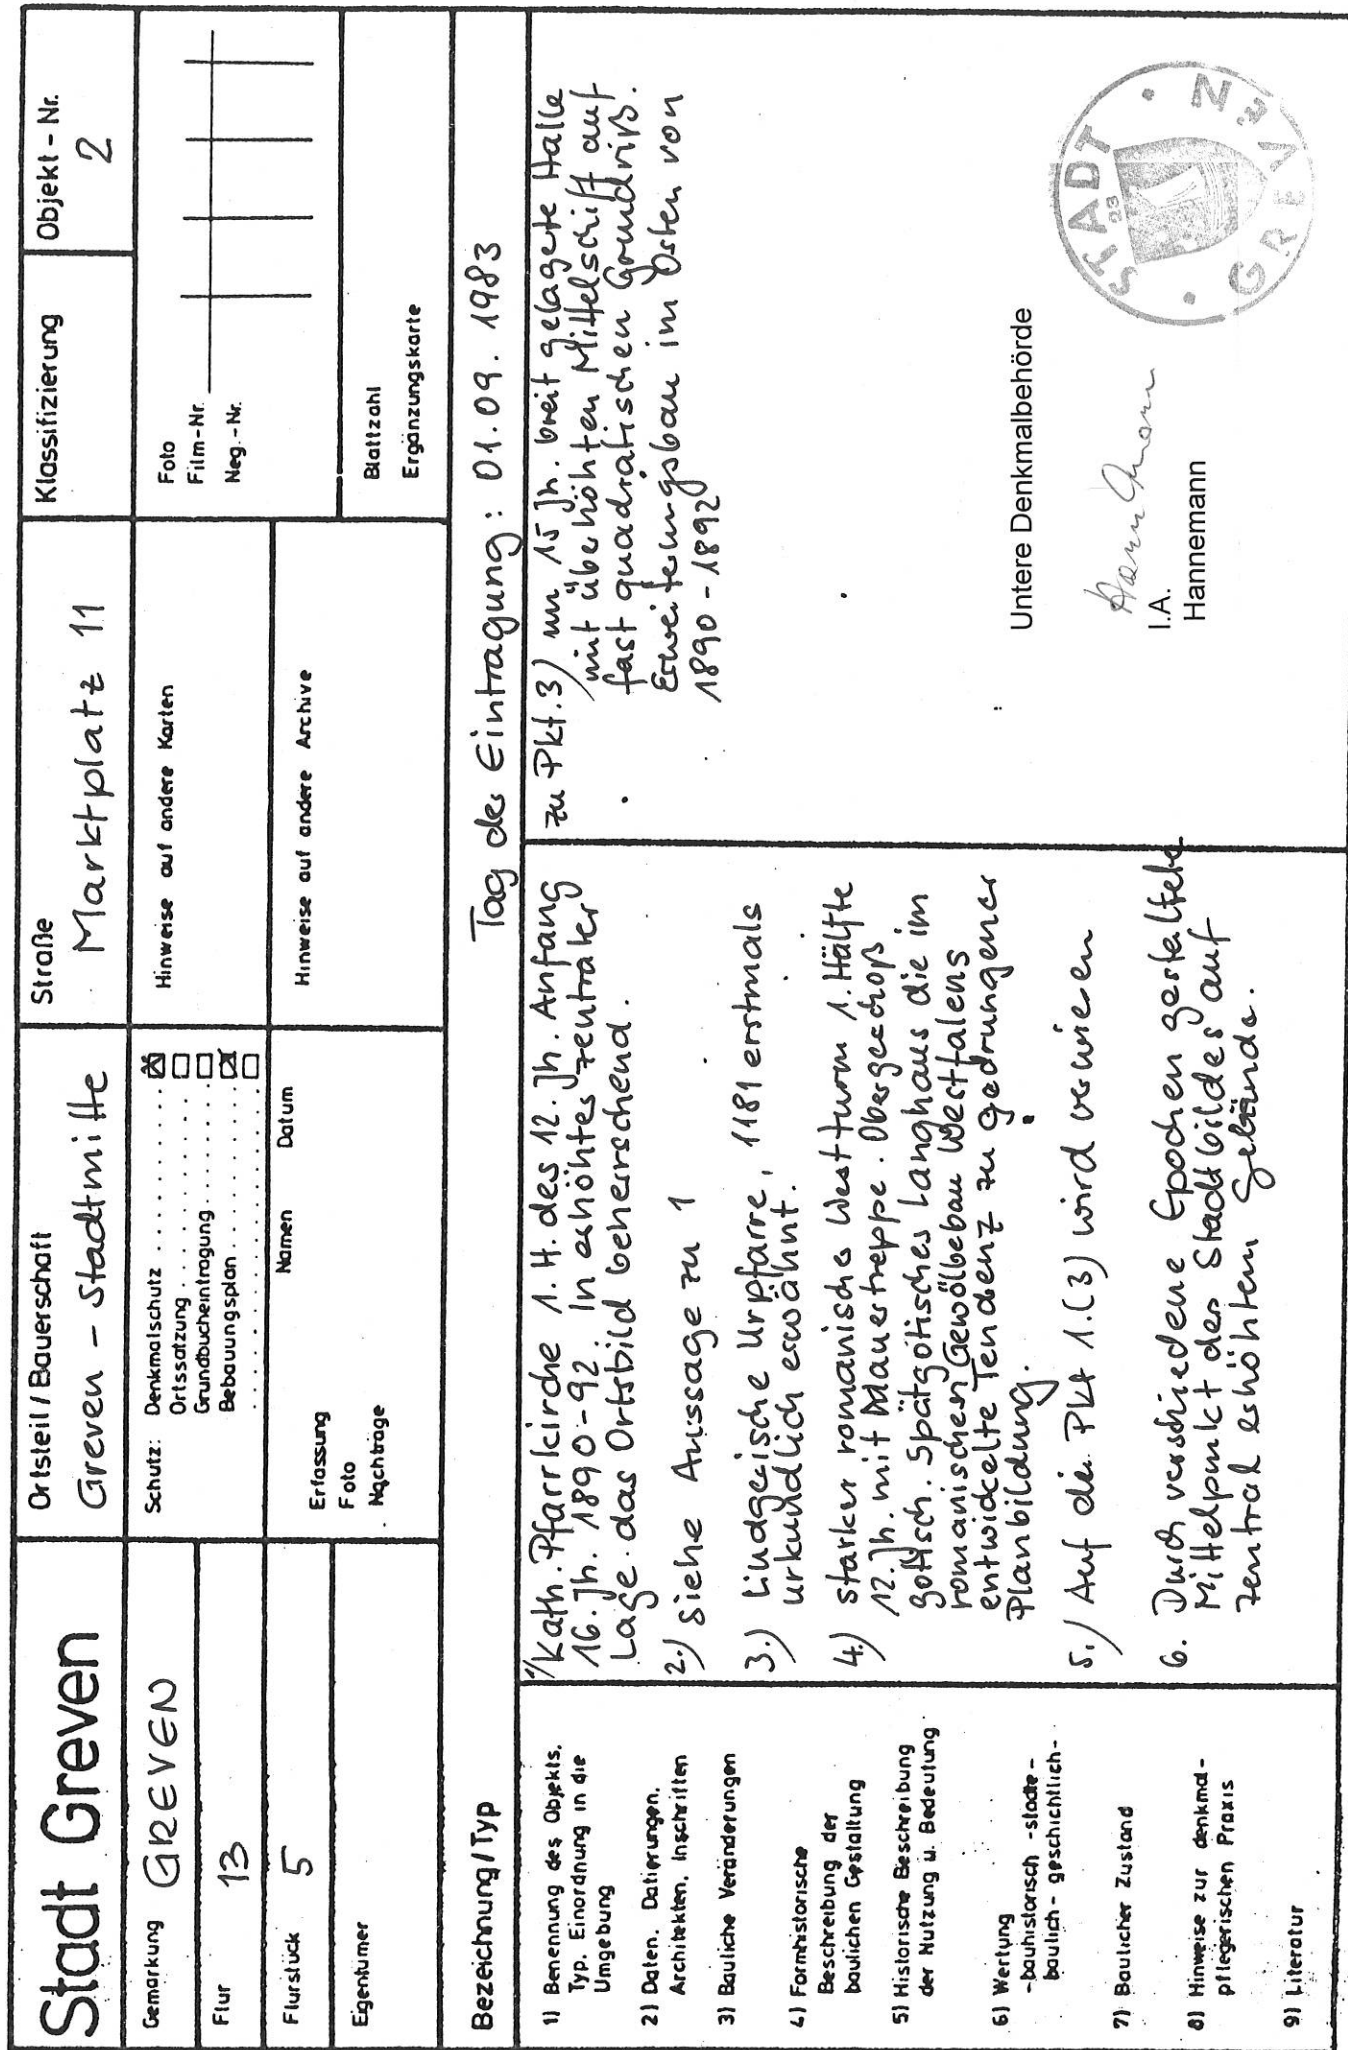 Stadt Greven
Ortsteil / Bauerschaft
Greven - Stadtmitte
Straße
Marktplatz 11
Klassifizierung
Objekt - Nr.
2
Gemarkung GREVEN
Flur 13
Flurstück 5
Eigentümer
Schutz: Denkmalschutz ☒
Ortssatzung ☐
Grundbucheintragung ☐
Bebauungsplan ☒
☐
Namen Datum
Erfassung
Foto
Nachträge
Hinweise auf andere Karten
Hinweise auf andere Archive
Foto
Film-Nr.
Neg.-Nr.
Blattzahl
Ergänzungskarte
Bezeichnung / Typ
Tag der Eintragung: 01.09.1983
1) Benennung des Objekts.
Typ. Einordnung in die
Umgebung
2) Daten. Datierungen.
Architekten. Inschriften
3) Bauliche Veränderungen
4) Formhistorische
Beschreibung der
baulichen Gestaltung
5) Historische Beschreibung
der Nutzung u. Bedeutung
6) Wertung
-bauhistorisch -stadte-
baulich - geschichtlich-
7) Baulicher Zustand
8) Hinweise zur denkmal-
pflegerischen Praxis
9) Literatur
1) Kath. Pfarrkirche 1. H. des 12. Jh. Anfang
16. Jh. 1890-92. In erhöhtes zentraler
Lage das Ortsbild beherrschend.
2.) Siehe Aussage zu 1
3.) Liudgerische Urpfarre, 1181 erstmals
urkundlich erwähnt.
4.) starker romanische Westturm 1. Hälfte
12. Jh. mit Mauertreppe. Obergeschoß
gotisch. Spätgotisches Langhaus die im
romanischen Gewölbebau Westfalens
entwickelte Tendenz zu gedrungener
Planbildung.
5.) Auf die Pkt 1.(3) wird verwiesen
6. Durch verschiedene Epochen gestaltete
Mittelpunkt des Stadtbildes auf
zentral erhöhtem Gelände.
zu Pkt. 3) um 15 Jh. breit gelagete Halle
mit überhöhten Mittelschiff auf
fast quadratischen Grundriß.
Erweiterungsbau im Osten von
1890-1892
Untere Denkmalbehörde
I.A.
Hannemann
STADT GREVEN
23